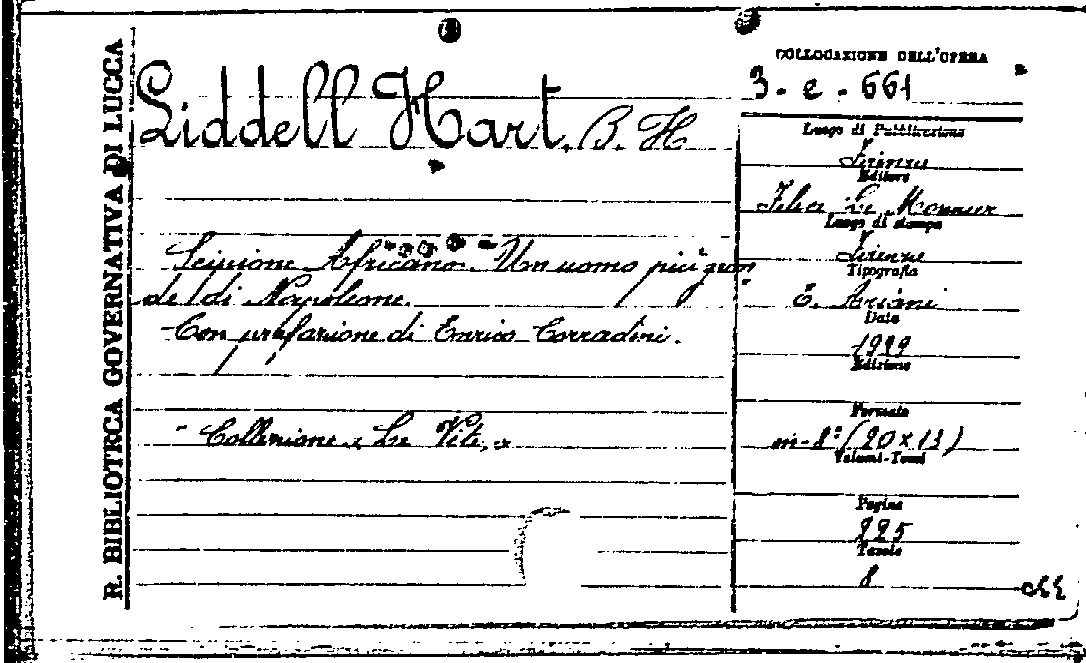 R. BIBLIOTECA GOVERNATIVA DI LUCCA
Liddell Hart, B. H
Scipione Africano. Un uomo più gran
de di Napoleone.
Con prefazione di Enrico Corradini.
- Collezione « Le Vite »
COLLOCAZIONE DELL'OPERA
3 - e - 661
Luogo di Pubblicazione
Firenze
Editore
Felice Le Monnier
Luogo di stampa
Firenze
Tipografia
E. Ariani
Data
1929
Edizione
Formato
in-8° (20x13)
Volumi-Tomi
Pagine
225
Tavole
8